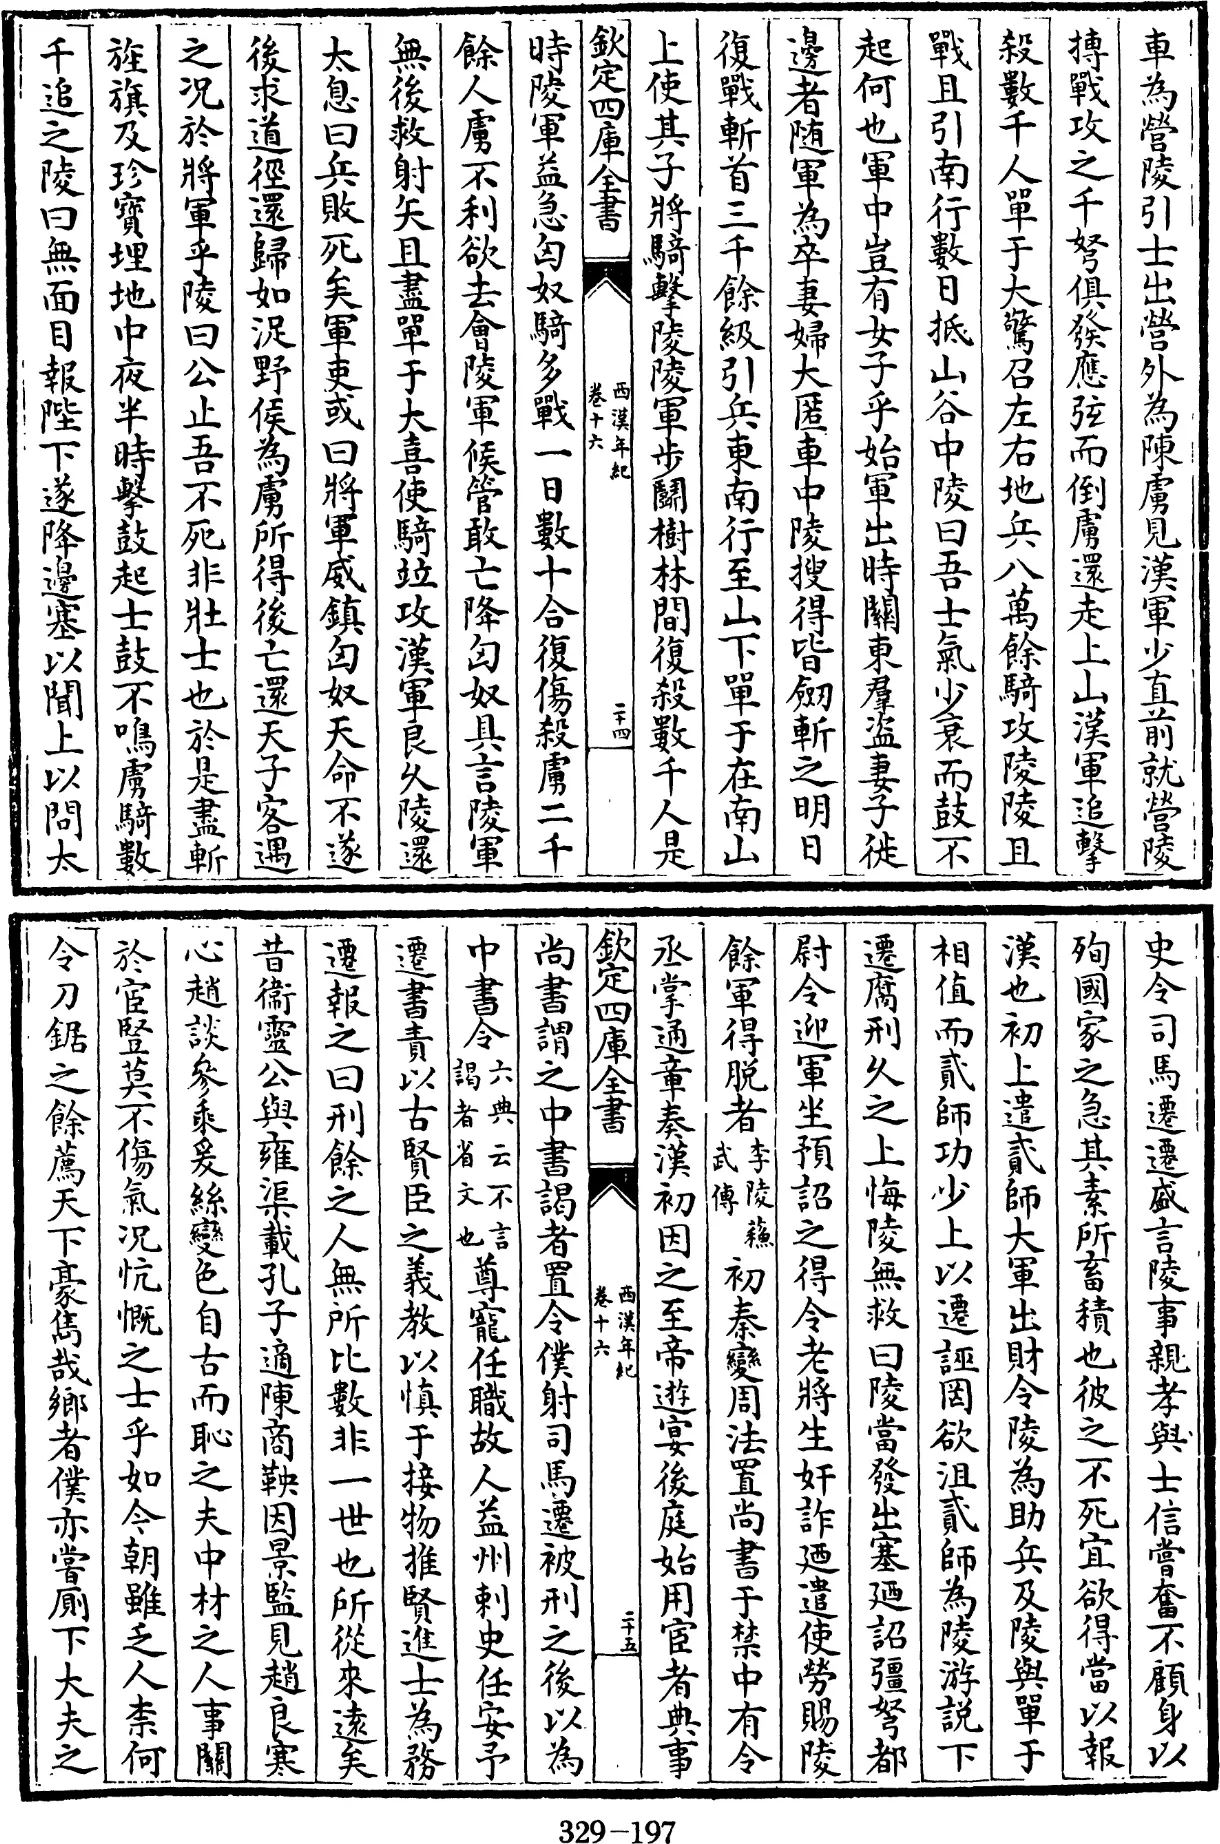 車為營陵引士出營外為陳虜見漢軍少直前就營陵
搏戰攻之千弩俱發應弦而倒虜還走上山漢軍追擊
殺數千人單于大驚召左右地兵八萬餘騎攻陵陵且
戰且引南行數日抵山谷中陵曰吾士氣少衰而鼓不
起何也軍中豈有女子乎始軍出時關東羣盗妻子徙
邊者随軍為卒妻婦大匿車中陵搜得皆劒斬之明日
復戰斬首三千餘級引兵東南行至山下單于在南山
上使其子將騎擊陵陵軍步鬭樹林間復殺數千人是
欽定四庫全書
西漢年紀
卷十六
二十四
時陵軍益急匈奴騎多戰一日數十合復傷殺虜二千
餘人虜不利欲去會陵軍候管敢亡降匈奴具言陵軍
無後救射矢且盡單于大喜使騎竝攻漢軍良久陵還
太息曰兵敗死矣軍吏或曰將軍威鎮匈奴天命不遂
後求道徑還歸如浞野侯為虜所得後亡還天子客遇
之况於將軍乎陵曰公止吾不死非壯士也於是盡斬
旌旗及珍寶埋地中夜半時擊鼓起士鼓不鳴虜騎數
千追之陵曰無面目報陛下遂降邊塞以聞上以問太
史令司馬遷遷盛言陵事親孝與士信嘗奮不顧身以
殉國家之急其素所畜積也彼之不死宜欲得當以報
漢也初上遣貳師大軍出財令陵為助兵及陵與單于
相值而貳師功少上以遷誣罔欲沮貳師為陵游說下
遷腐刑久之上悔陵無救曰陵當發出塞廼詔彊弩都
尉令迎軍坐預詔之得令老將生奸詐廼遣使勞賜陵
餘軍得脱者李陵蘇武傳初秦變周法置尚書于禁中有令
丞掌通章奏漢初因之至帝遊宴後庭始用宦者典事
欽定四庫全書
西漢年紀
卷十六
二十五
尚書謂之中書謁者置令僕射司馬遷被刑之後以為
中書令六典云不言謁者省文也尊寵任職故人益州刺史任安予
遷書責以古賢臣之義教以慎于接物推賢進士為務
遷報之曰刑餘之人無所比數非一世也所從來逺矣
昔衞靈公與雍渠載孔子適陳商鞅因景監見趙良寒
心趙談參乘爰絲變色自古而恥之夫中材之人事關
於宦豎莫不傷氣况忼慨之士乎如今朝雖乏人柰何
令刀鋸之餘薦天下豪雋哉鄉者僕亦嘗厠下大夫之
329-197